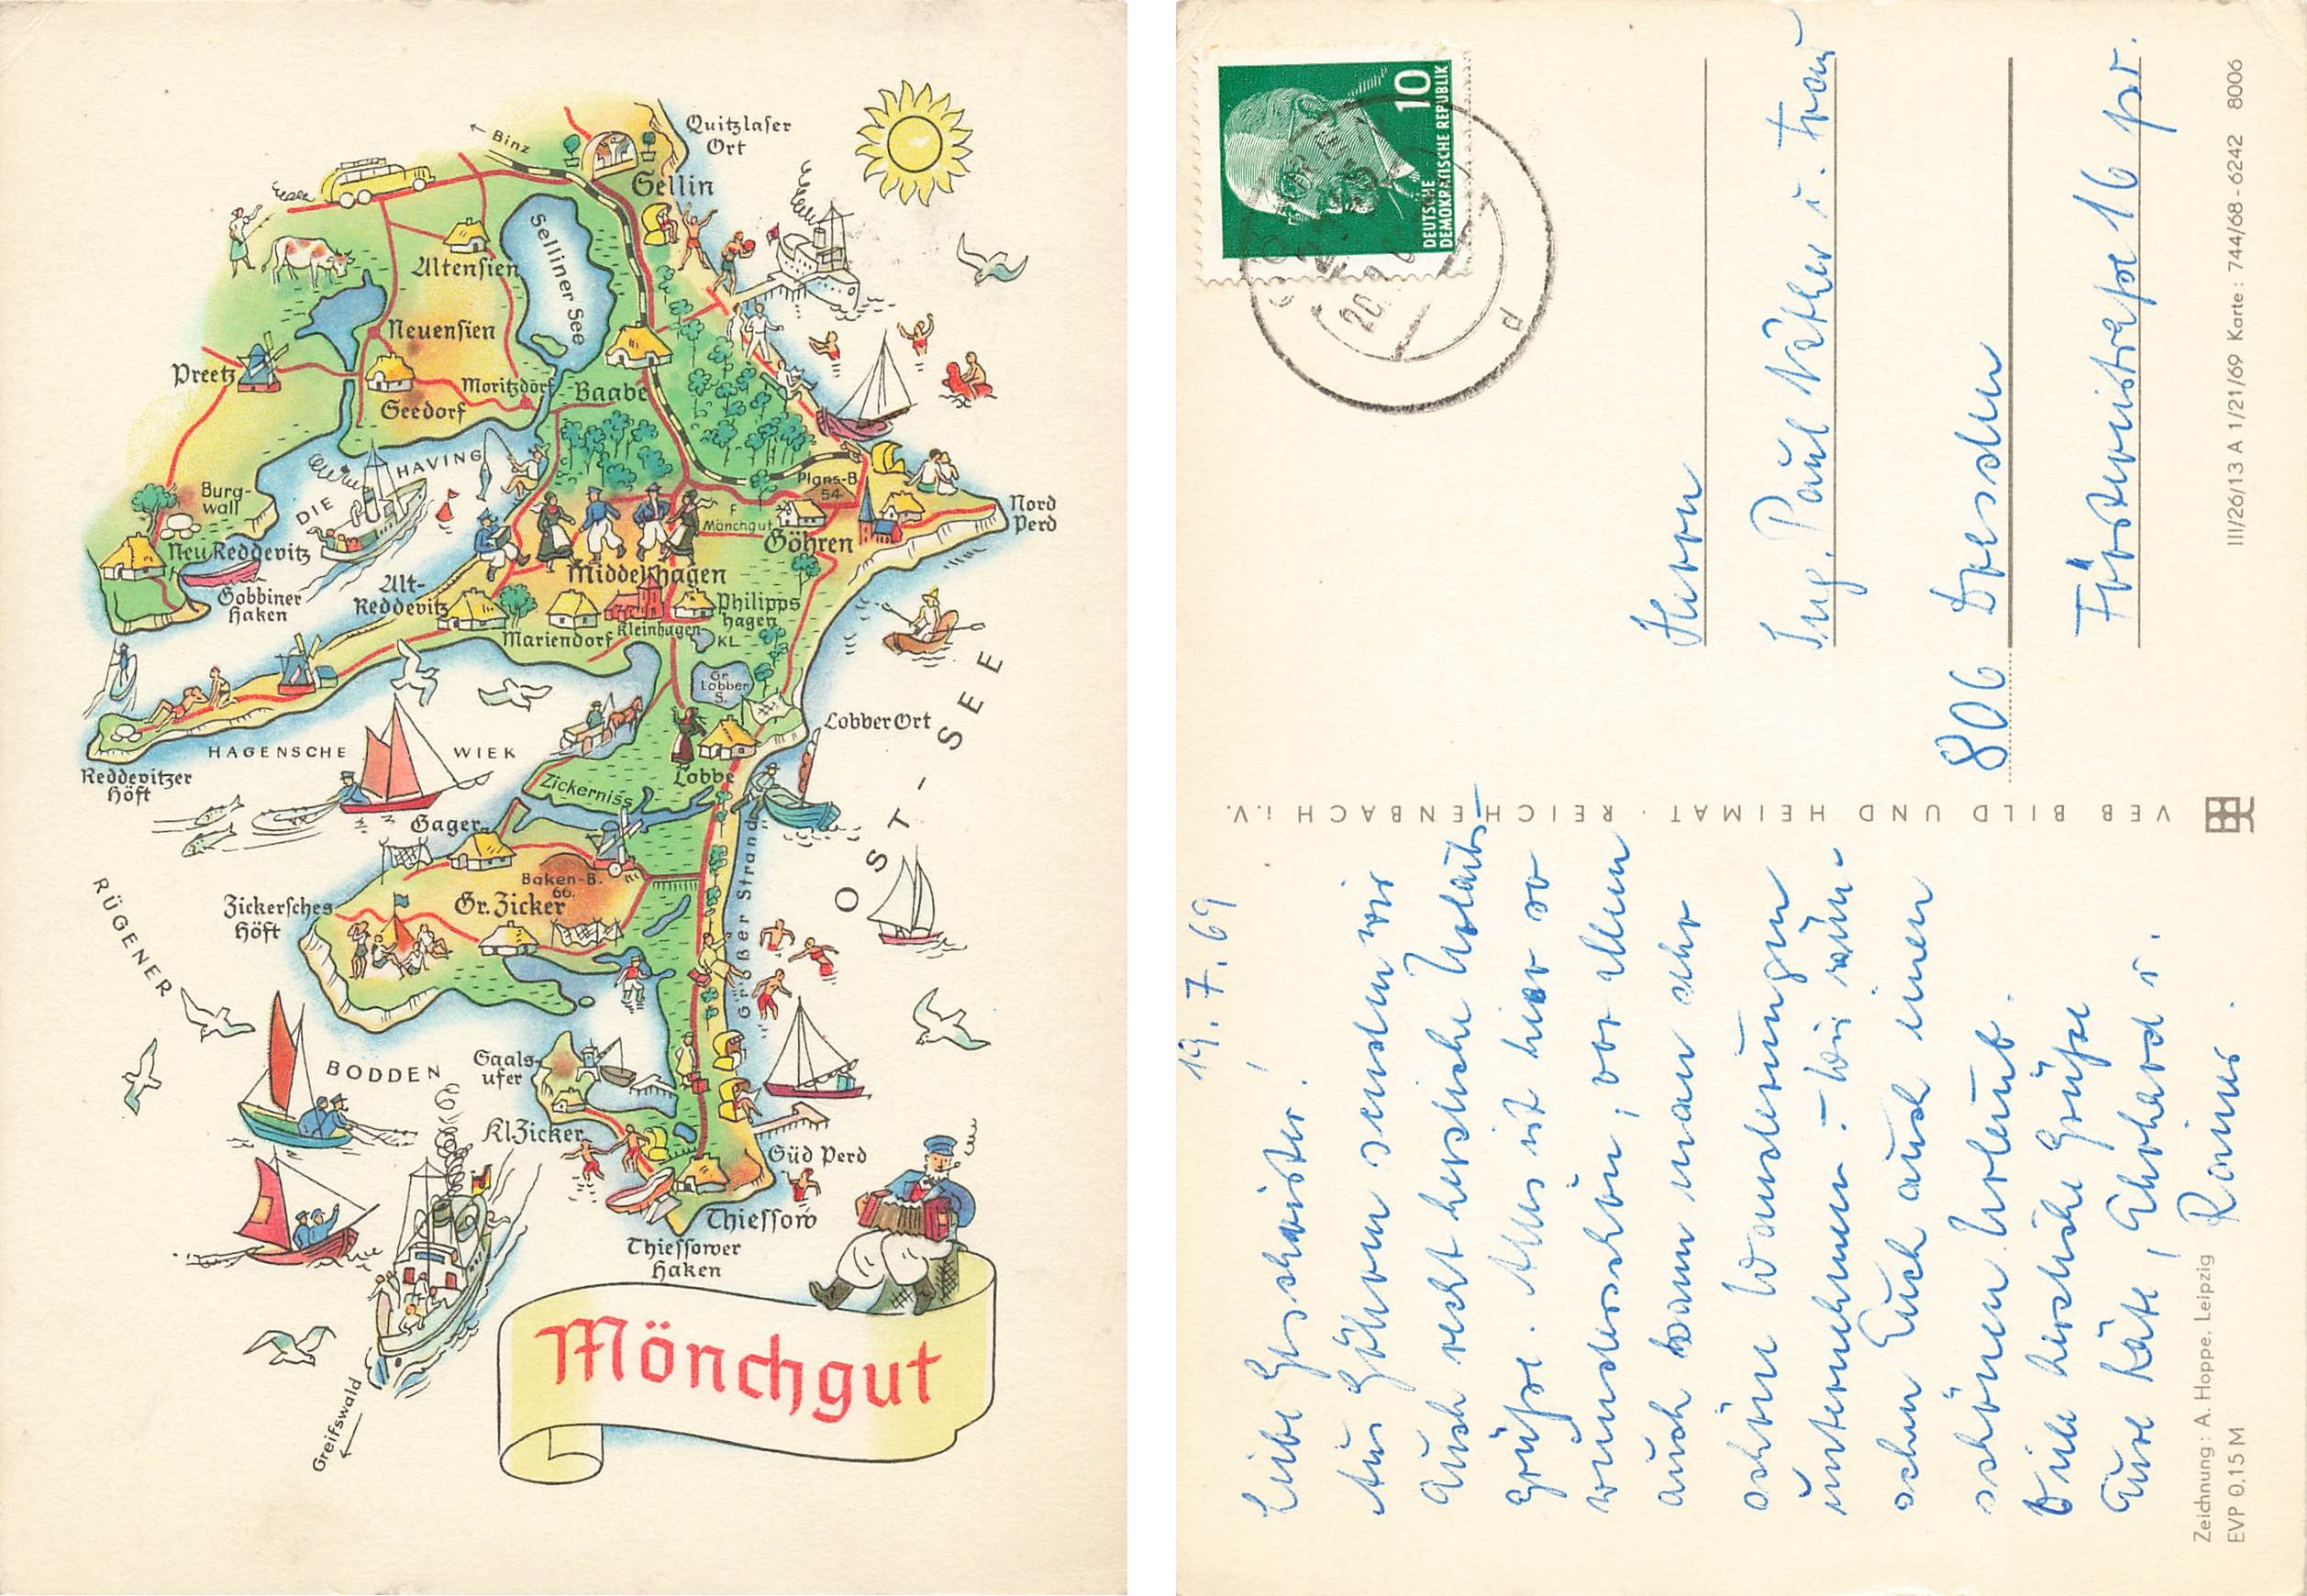 ← Binz
Quitzlaser
Ort
Sellin
Selliner See
Altensien
Neuensien
Preetz
Seedorf
Moritzdorf
Baabe
DIE HAVING
Burg-
wall
Plans-B
54
Nord
Perd
F
Mönchgut
Göhren
Neu Reddevitz
Gobbiner
Haken
Alt-
Reddevitz
Middelhagen
Philipps
hagen
Mariendorf
Kleinhagen
KL
Gr.
Lobber
S.
Lobber Ort
OST-SEE
HAGENSCHE WIEK
Reddevitzer
Höft
Lobbe
Zickerniss
Gager
Baken-B.
66.
Gr. Zicker
Zickersches
Höft
Großer Strand
RÜGENER
BODDEN
Saals-
ufer
Kl. Zicker
Süd Perd
Thiessow
Thiessower
Haken
Greifswald
←
Mönchgut
19. 7. 69
Liebe Geschwister!
Aus Göhren senden wir
Euch recht herzliche Urlaubs-
grüße. Alles ist hier so
wunderschön, vor allem
auch kann man sehr
schöne Wanderungen
unternehmen. – Wir wün-
schen Euch auch einen
schönen Urlaub.
Viele herzliche Grüße
Eure Käte, Ehrhard u.
Rainer.
Zeichnung: A. Hoppe, Leipzig
EVP 0.15 M
VEB BILD UND HEIMAT · REICHENBACH i.V.
10
DEUTSCHE
DEMOKRATISCHE REPUBLIK
20
d
Herrn
Ing. Paul Näther u. Frau
806 Dresden
Förstereistraße 16 pr.
III/26/13 A 1/21/69 Karte: 744/68 - 6242 8006